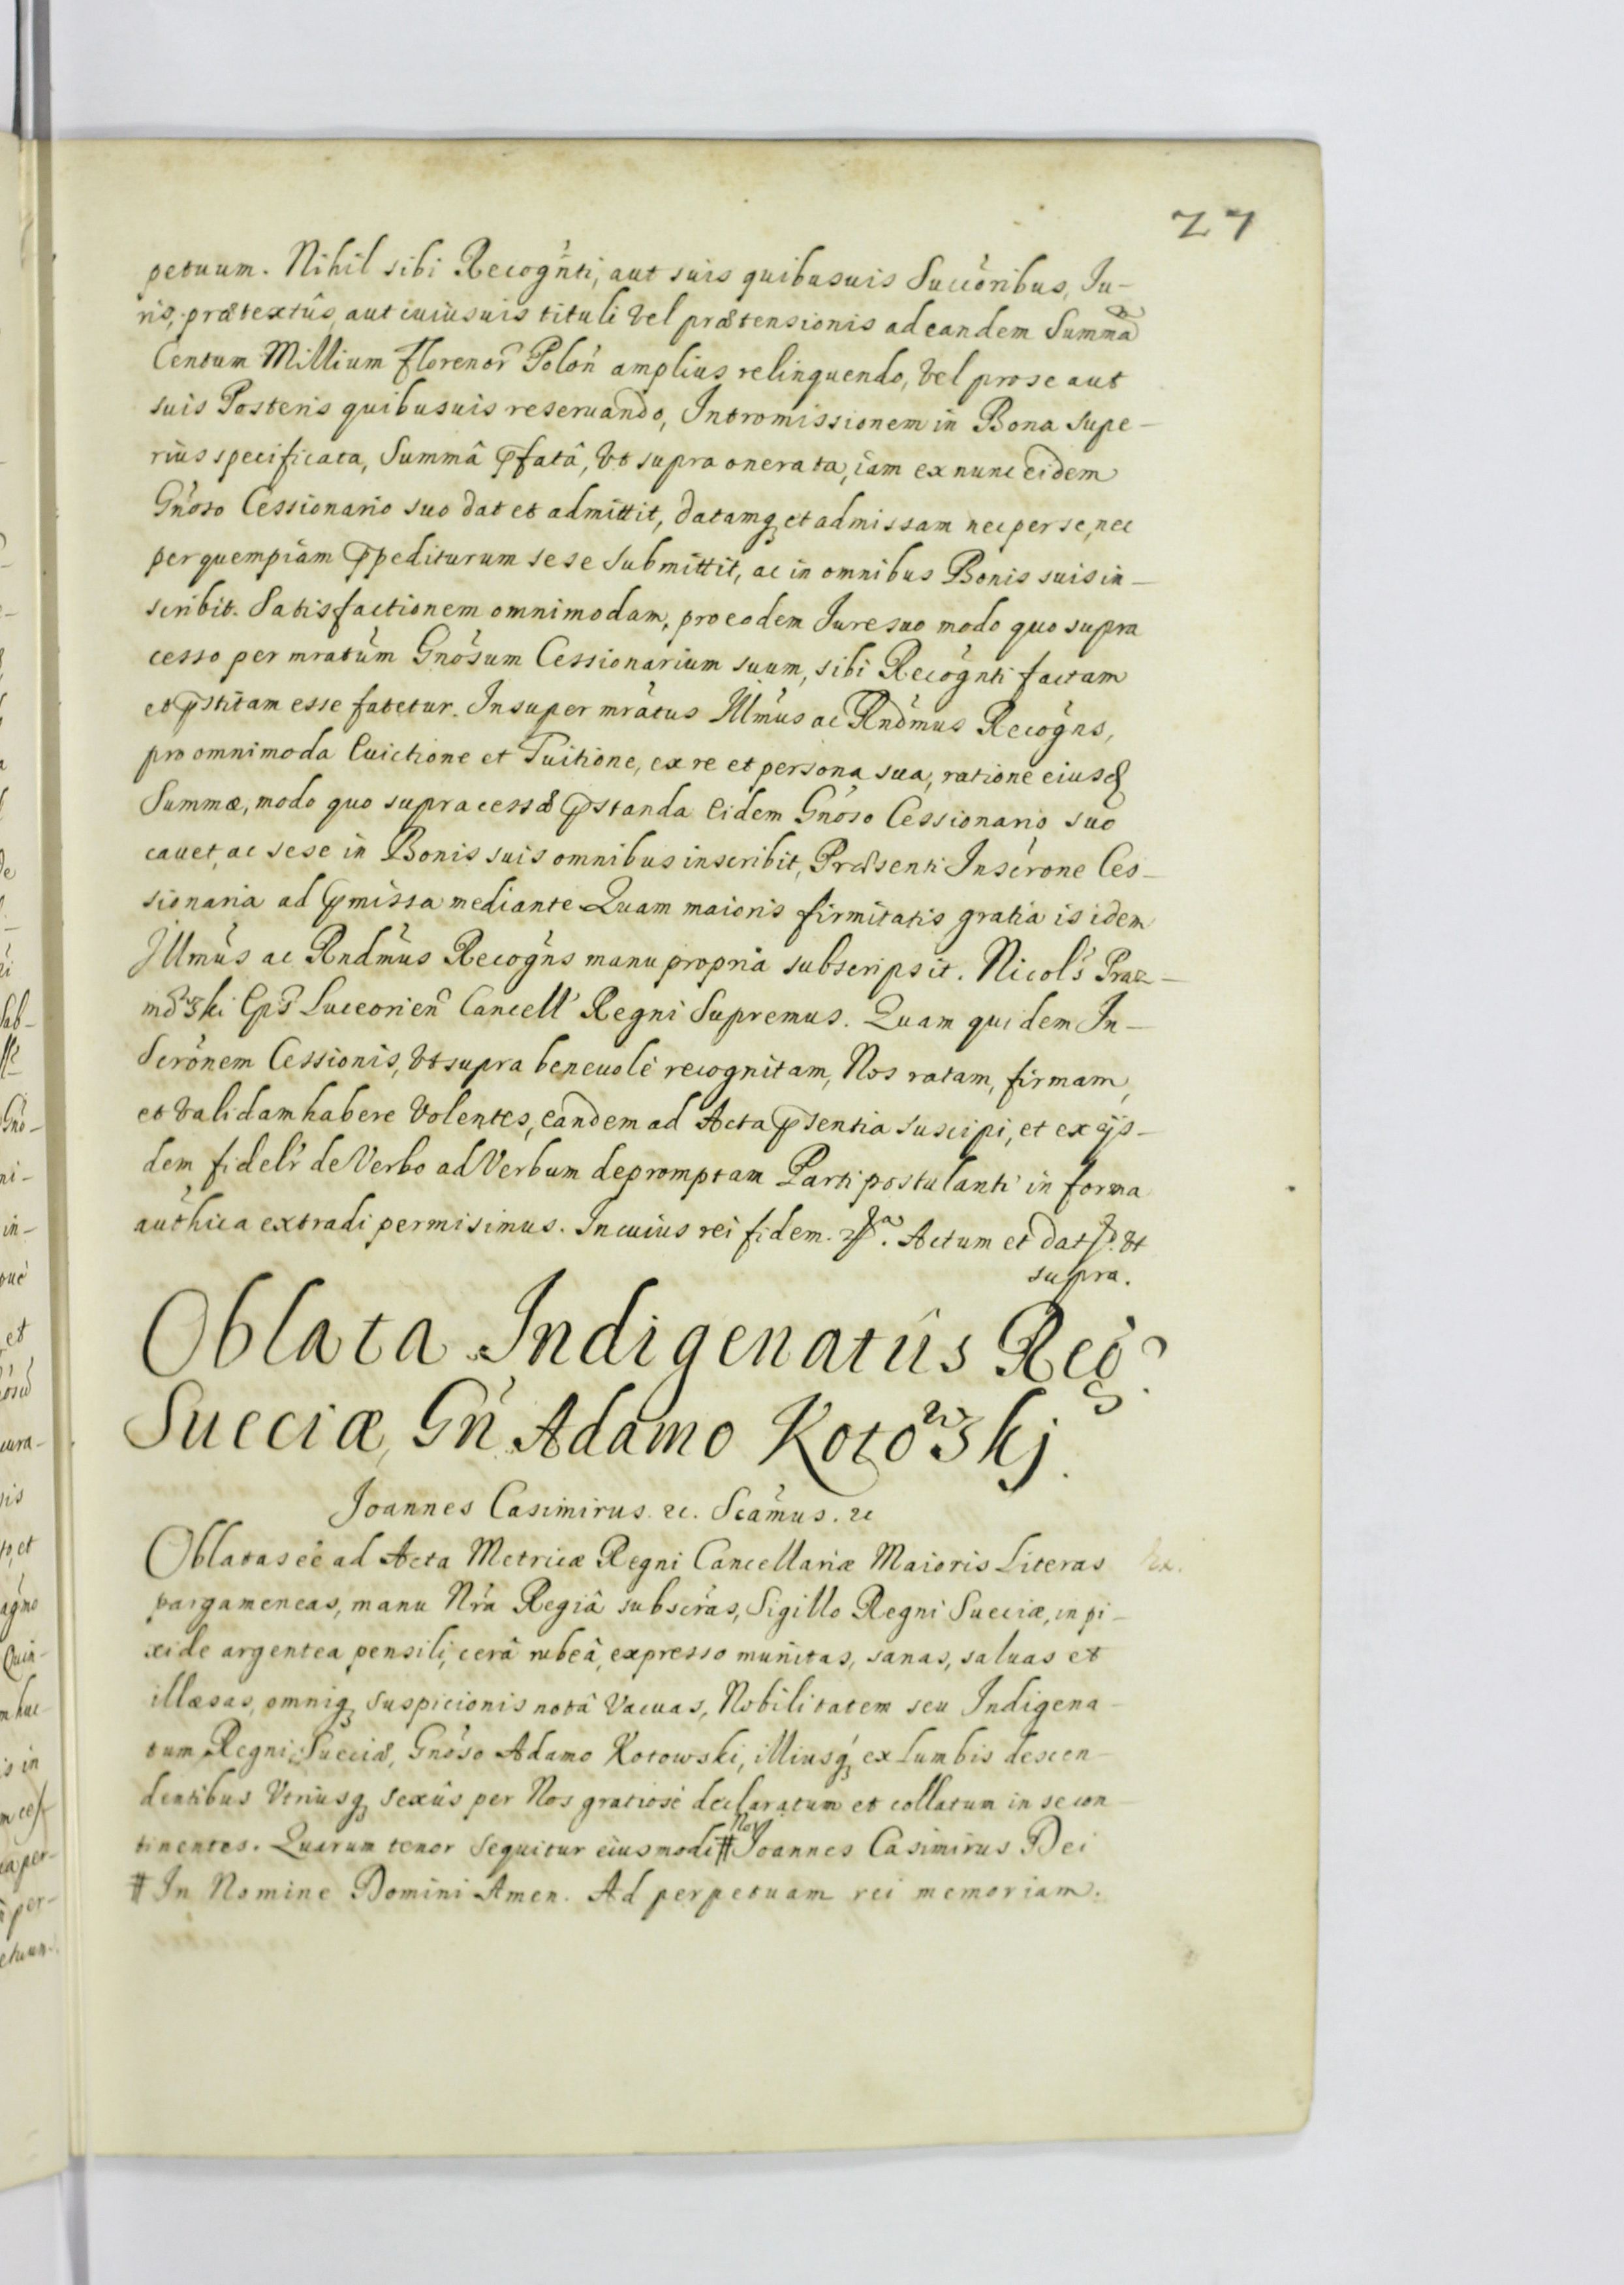 27
petuum. Nihil sibi Recogñti, aut suis quibusuis Succõribus, Iu-
ris, prætextûs, aut cuiusuis tituli vel prætensionis ad eandem Summã
Centum Millium florenor̃ Poloñ amplius relinquendo, vel pro se aut
suis Posteris quibusuis reseruando, Intromissionem in Bona supe-
rius specificata, Summâ p̃fatâ, vt supra onerata, iam ex nunc eidem
Gñoso Cessionario suo dat et admittit, datamq₃ et admissam nec per se, nec
per quempiam p̃pediturum sese submittit, ac in omnibus Bonis suis in-
scribit. Satisfactionem omnimodam, pro eodem Iure suo modo quo supra
cesso per mratũm Gnõsum Cessionarium suum, sibi Recogñti factam
et p̃stitam esse fatetur. Insuper mrãtus Illm̃us ac Rndm̃us Recogñs,
pro omnimoda Euictione et Tuitione, ex re et persona sua, ratione eiusd̃
Summæ, modo quo supra cessæ p̃standa Eidem Gñoso Cessionario suo
cauet, ac sese in Bonis suis omnibus inscribit, Præsenti Inscrõne Ces-
sionaria ad p̃missa mediante. Quam maioris firmitatis gratia is idem
Illmũs ac Rndmũs Recogñs manu propria subscripsit. Nicol's Praz-
mow̃ski Ep̃s Luceorieñ Cancell' Regni Supremus. Quam quidem In-
scrõnem Cessionis, vt supra beneuolè recognitam, Nos ratam, firmam,
et validam habere volentes, eandem ad Acta p̃sentia suscipi, et ex ijs-
dem fidelr̃ de Verbo ad Verbum depromptam Parti postulanti in forma
authẽica extradi permisimus. In cuius rei fidem. Actum et dat vt
supra.
Oblata Indigenatûs Reg̃
Sueciæ, Gñ Adamo Kotow̃skj.
Joannes Casimirus. &c. Scãmus. &c
Oblatas eẽ ad Acta Metricæ Regni Cancellariæ Maioris Literas
pargameneas, manu Nrã Regiâ subscrãs, Sigillo Regni Sueciæ, in pi-
xide argentea pensili, cerâ rubeâ, expresso munitas, sanas, saluas et
illæsas, omniq₃ suspicionis notâ vacuas, Nobilitatem seu Indigena-
tum Regni Sueciæ, Gnõso Adamo Kotowski, illiusq₃ ex Lumbis descen-
dentibus Vtriusq₃ sexûs per Nos gratiosè declaratum et collatum in se con-
tinentes. Quarum tenor sequitur eiusmodi # Nos Joannes Casimirus Dei
# In Nomine Domini Amen. Ad perpetuam rei memoriam.